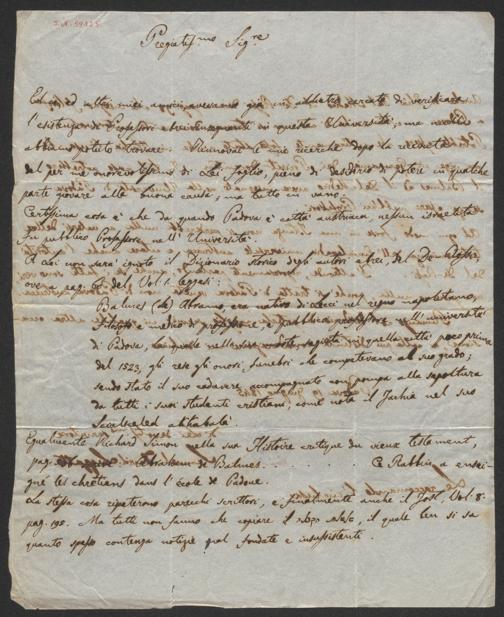 Pregiatis.mo Sig.re
Ed io ed altri miei amici avevamo già cercato di verificare
l'esistenza di Professori in questa Università; ma nulla
abbiamo potuto trovare. Rinnovai le mie ricerche dopo la
del per me onorevolissimo di Lei foglio, pieno di desiderio di potere in qualche
parte giovare alla buona causa; ma tutto in vano.
Certissima cosa è che da quando Padova è città austriaca, nessun israelita
fu pubblico Professore nell'Università.
A Lei non sarà ignoto il Dizionario storico degli autori ebrei del De Rossi,
ove a pag. del Vol. 1. leggesi:
Balmes (de) Abramo, era nativo di Lecci nel regno napoletano,
filosofo e medico di professione, e pubblico professore nell'università
di Padova, in quella città poco prima
del 1523, gli rese gli onori funebri che competevano al suo grado;
sendo stato il suo cadavere accompagnato con pompa alla sepoltura
da tutti i suoi studenti cristiani, come nota il Jachia nel suo
Egualmente Richard Simon nella sua Histoire critique du vieux testament,
pag. Abraham de Balmes . . . . Ce Rabbin a ensei-
gné les chrétiens dans l'école de Padoue.
La stessa cosa ripeterono parecchi scrittori, e finalmente anche il Jost, Vol. 8.
pag. Ma tutti non fanno che copiare il il quale ben si sa
quanto spesso contenga notizie mal fondate e insussistenti.